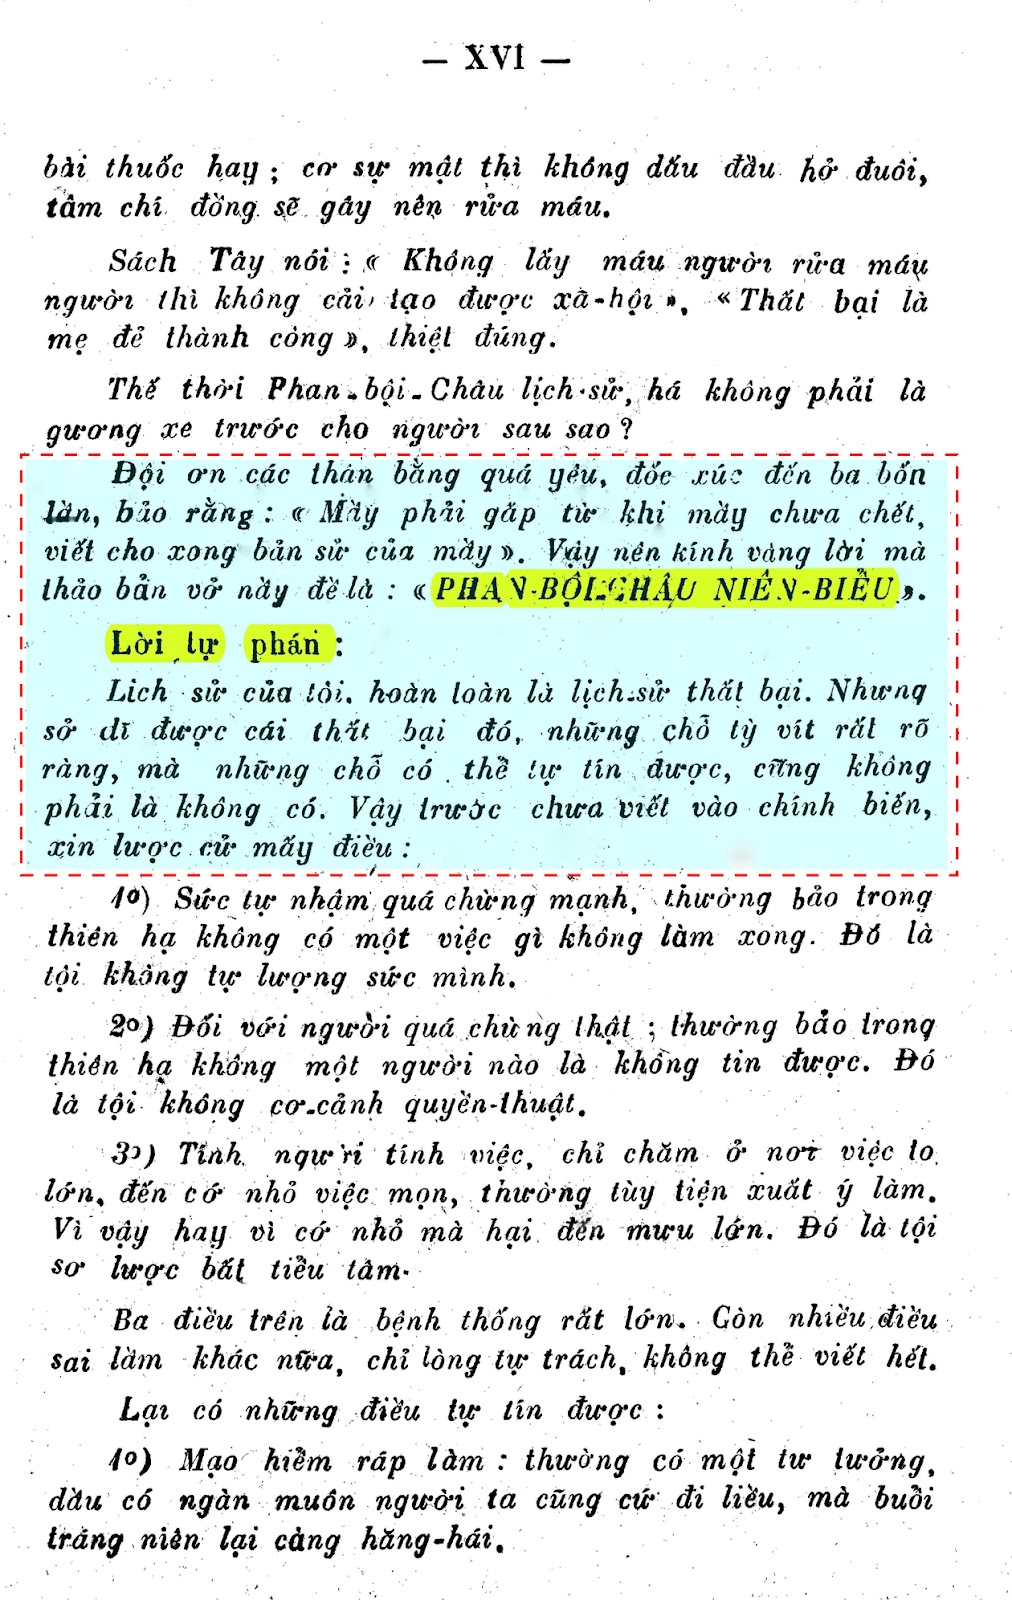 — XVI —
bài thuốc hay ; cơ sự mật thì không dấu đầu hở đuôi,
tâm chí đồng sẽ gây nên rửa máu.
Sách Tây nói : « Không lấy máu người rửa máu
người thì không cải tạo được xã-hội », « Thất bại là
mẹ đẻ thành công », thiệt đúng.
Thế thời Phan-bội-Châu lịch-sử, há không phải là
gương xe trước cho người sau sao ?
Đội ơn các thân bằng quá yêu, đốc xúc đến ba bốn
lần, bảo rằng : « Mầy phải gắp từ khi mầy chưa chết,
viết cho xong bản sử của mầy ». Vậy nên kính vâng lời mà
thảo bản vở nầy đề là : « PHAN-BỘI-CHÂU NIÊN-BIỂU ».
Lời tự phán :
Lich sử của tôi, hoàn toàn là lịch-sử thất bại. Nhưng
sở dĩ được cái thất bại đó, những chỗ tỳ vít rất rõ
ràng, mà những chỗ có thể tự tín được, cũng không
phải là không có. Vậy trước chưa viết vào chính biến,
xin lược cử mấy điều :
1o) Sức tự nhậm quá chừng mạnh, thường bảo trong
thiên hạ không có một việc gì không làm xong. Đó là
tội không tự lượng sức mình.
2o) Đối với người quá chừng thật ; thường bảo trong
thiên hạ không một người nào là không tin được. Đó
là tội không cơ-cảnh quyền-thuật.
3o) Tính người tính việc, chỉ chăm ở nơi việc to
lớn, đến cớ nhỏ việc mọn, thường tùy tiện xuất ý làm.
Vì vậy hay vì cớ nhỏ mà hại đến mưu lớn. Đó là tội
sơ lược bất tiểu tâm.
Ba điều trên là bệnh thống rất lớn. Còn nhiều điều
sai lầm khác nữa, chỉ lòng tự trách, không thể viết hết.
Lại có những điều tự tín được :
1o) Mạo hiểm ráp làm : thường có một tư tưởng,
dầu có ngàn muôn người ta cũng cứ đi liều, mà buổi
tráng niên lại càng hăng-hái.